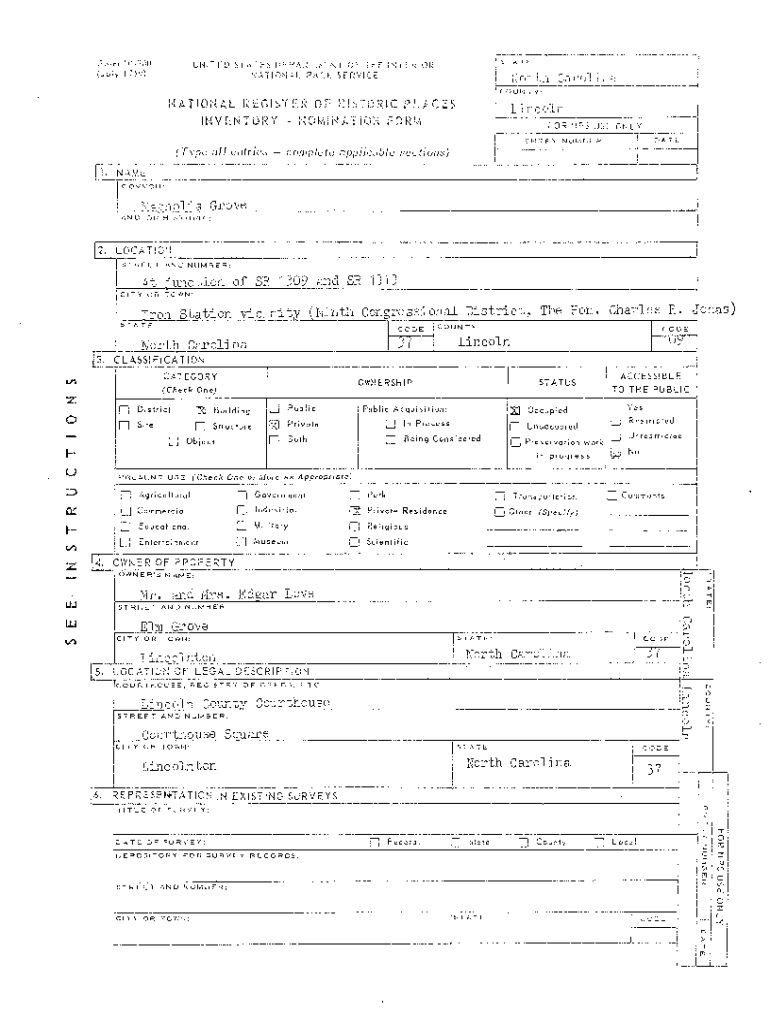 (July 1969)
UNITED STATES DEPARTMENT OF THE INTERIOR
NATIONAL PARK SERVICE
STATE:
North Carolina
COUNTY:
Lincoln
NATIONAL REGISTER OF HISTORIC PLACES
INVENTORY - NOMINATION FORM
FOR NPS USE ONLY
ENTRY NUMBER DATE
(Type all entries — complete applicable sections)
1. NAME
COMMON:
Magnolia Grove
AND/OR HISTORIC:
2. LOCATION
STREET AND NUMBER:
At junction of SR 1309 and SR 1313
CITY OR TOWN:
Iron Station vicinity (Ninth Congressional District, The Hon. Charles R. Jonas)
STATE CODE COUNTY: CODE
North Carolina 37 Lincoln 109
3. CLASSIFICATION
CATEGORY
(Check One)
OWNERSHIP
STATUS
ACCESSIBLE
TO THE PUBLIC
District Building Public Public Acquisition: Occupied Yes:
Site Structure Private In Process Unoccupied Restricted
Object Both Being Considered Preservation work in progress Unrestricted
No
PRESENT USE (Check One or More as Appropriate)
Agricultural Government Park Transportation Comments
Commercial Industrial Private Residence Other (Specify)
Educational Military Religious
Entertainment Museum Scientific
4. OWNER OF PROPERTY
OWNER'S NAME:
Mr. and Mrs. Edgar Love
STREET AND NUMBER:
Elm Grove
CITY OR TOWN: STATE: CODE
Lincolnton North Carolina 37
5. LOCATION OF LEGAL DESCRIPTION
COURTHOUSE, REGISTRY OF DEEDS, ETC:
Lincoln County Courthouse
STREET AND NUMBER:
Courthouse Square
CITY OR TOWN: STATE CODE
Lincolnton North Carolina 37
6. REPRESENTATION IN EXISTING SURVEYS
TITLE OF SURVEY:
DATE OF SURVEY: Federal State County Local
DEPOSITORY FOR SURVEY RECORDS:
STREET AND NUMBER:
CITY OR TOWN: STATE: CODE
SEE INSTRUCTIONS
STATE:
North Carolina
COUNTY:
Lincoln
ENTRY NUMBER
DATE
FOR NPS USE ONLY